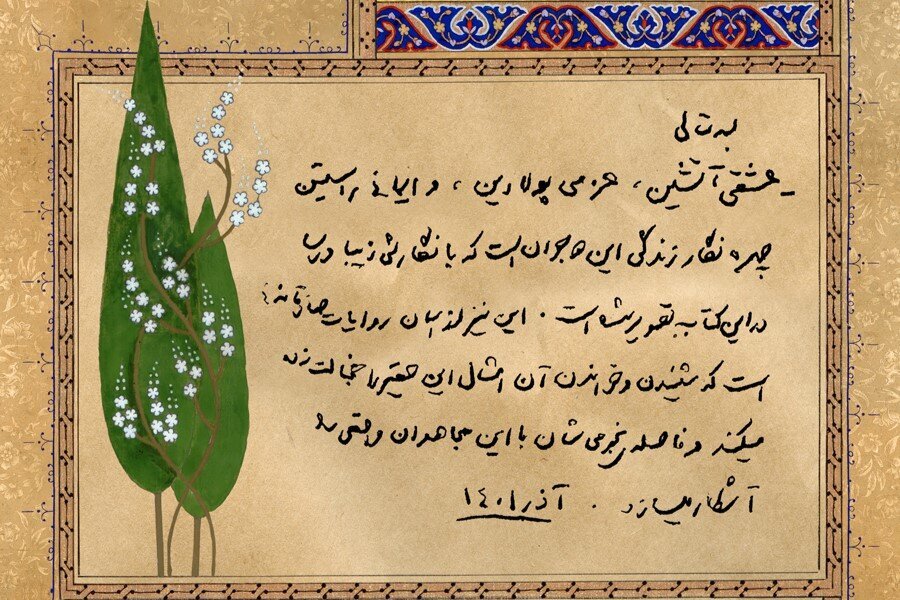 بسمه تعالی
ـ عشقی آتشین، عزمی پولادین، و ایمانی راستین
چهره نگار زندگی این جوان است که با نگارشی زیبا و رسا
در این کتاب تصویر شده است. این نیز از آن روایات صادقانه‌ئی
است که شنیدن و خواندن آن امثال این حقیر را خجالت زده
میکند و فاصله‌ی نجومی شان با این مجاهدان واقعی را
آشکار میسازد. آذر ۱۴۰۱